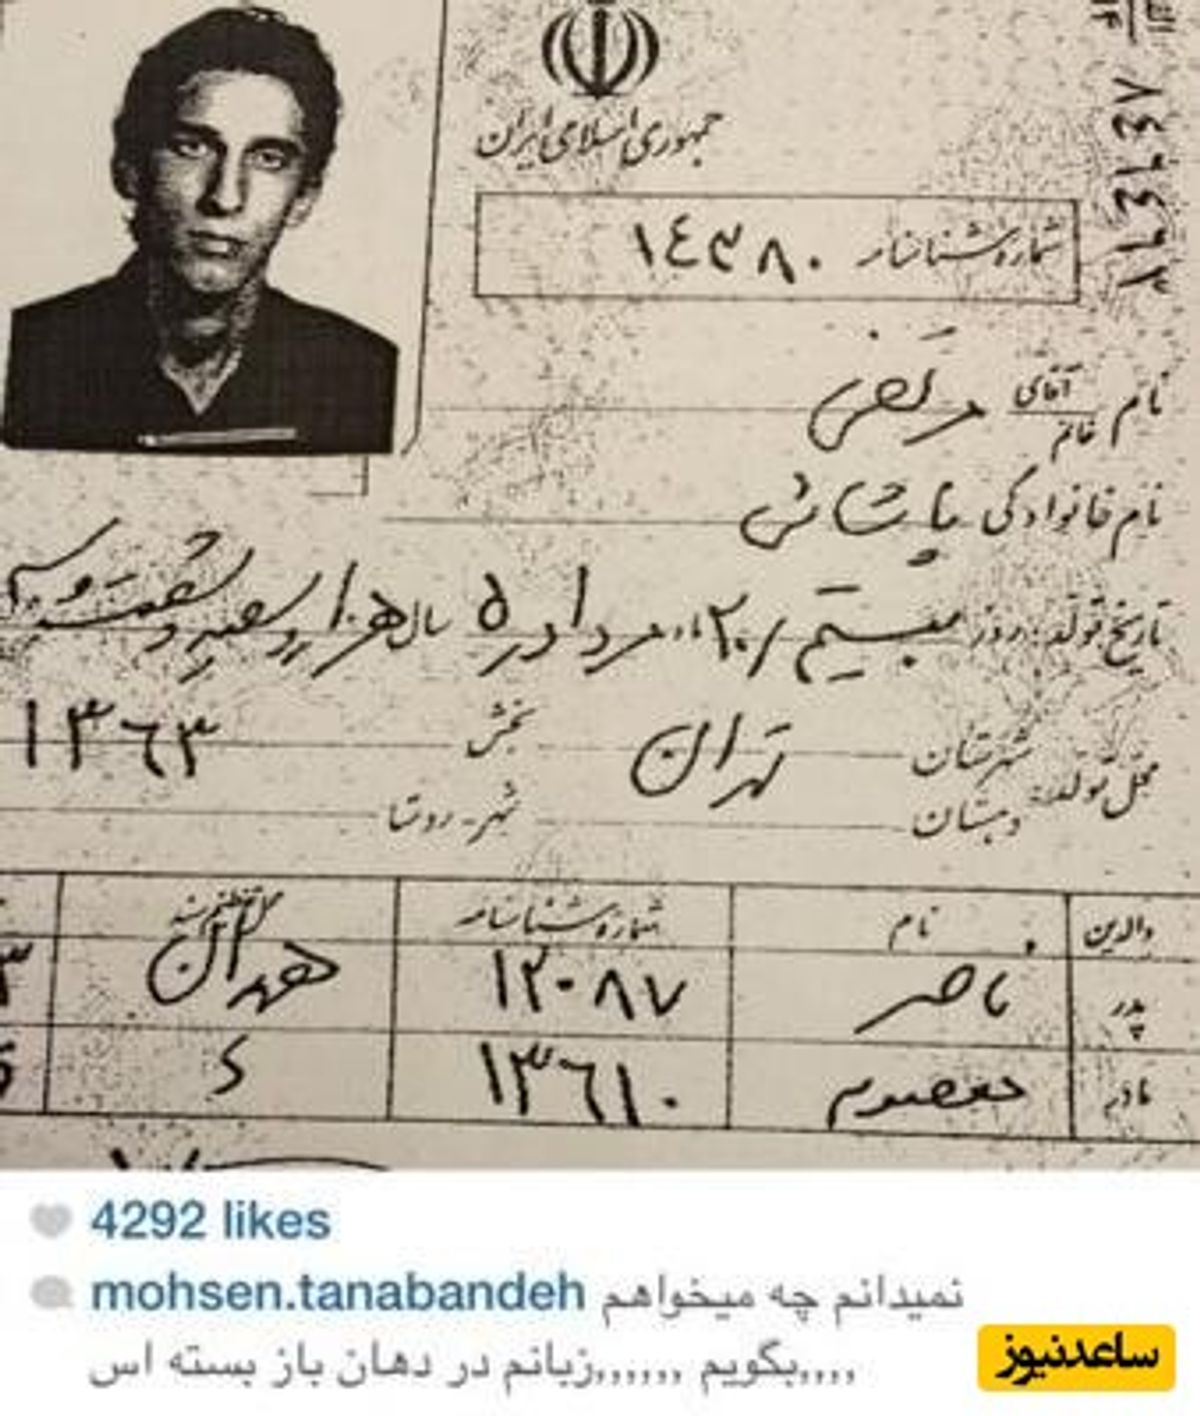 جمهوری اسلامی ایران
شماره شناسنامه ۱۴۳۸۰
نام آقای خانم مرتضی
نام خانوادگی پاشائی
تاریخ تولد: روز بیستم /۲۰ ماه مرداد ۵ سال هزار و سیصد و شصت و سه
۱۳۶۳
محل تولد: شهرستان تهران بخش
دهستان شهر - روستا
والدین نام شماره شناسنامه محل تنظیم سند
پدر ناصر ۱۲۰۸۷
مادر معصومه ۱۳۶۱۰
4292 likes
mohsen.tanabandeh نمیدانم چه میخواهم
بگویم ,,,,,,زبانم در دهان باز بسته اس,,,,
ساعدنیوز